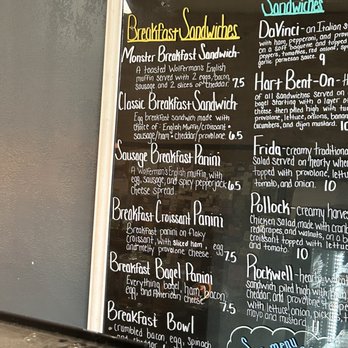 Breakfast Sandwiches
Monster Breakfast Sandwich-
A toasted Wolferman's English
muffin served with 2 eggs, bacon,
sausage and 2 slices of cheddar. 7.5
Classic Breakfast Sandwich-
Egg breakfast sandwich made with
choice of • English Muffin/croissant •
sausage/ham • cheddar/provolone 6.5
Sausage Breakfast Panini
A Wolferman's English muffin, with
egg, sausage, and spicy pepperjack
cheese spread. 6.5
Breakfast Croissant Panini
Breakfast panini on flaky
croissant, with sliced ham, egg
and melty provolone cheese 7.5
Breakfast Bagel Panini
Everything bagel, ham, bacon,
egg, and American cheese 7.5
Breakfast Bowl
crumbled bacon, egg, spinach
Sandwiches
DaVinci-an Italian s
with ham, pepperoni, and prov
on a soft baguette and topped
peppers, tomatoes, red onions,
garlic parmesan sauce. 9
Hart Bent-On-the
of all Sandwiches served on
bagel starting with a layer of
cheese then piled high with tur
provolone, lettuce, onions, banana
cucumbers, and dijon mustard. 10
Frida-creamy traditional
Salad served on hearty whea
topped with provolone, lettuce
tomato, and onion. 10
Pollock-creamy harves
Chicken Salad, made with cran
red grapes, and walnuts, on a b
croissant topped with lettuce
tomato and onion. 10
Rockwell-hearty wh
sandwich piled high with
cheddar, and provolone
with lettuce, tomato
mayo and mustard
See menu